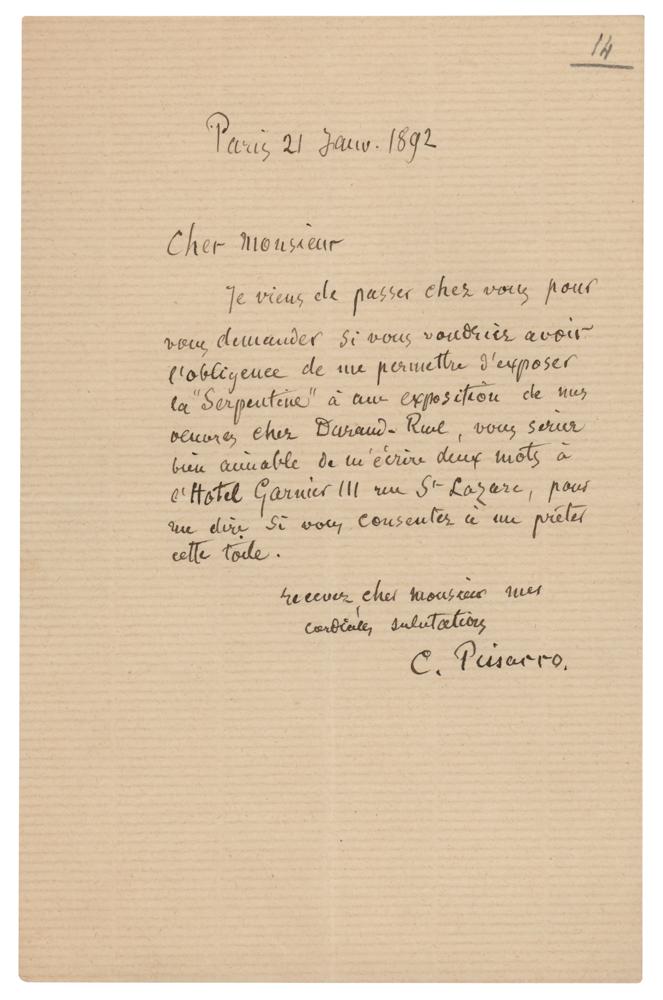 14
Paris 21 Janv. 1892
Cher Monsieur
Je viens de passer chez vous pour
vous demander si vous voudriez avoir
l'obligence de me permettre d'exposer
la "Serpentine" à une exposition de mes
oeuvres chez Durand-Ruel, vous seriez
bien aimable de m'écrire deux mots à
l'Hotel Garnier 111 rue St Lazare, pour
me dire si vous consentez à me prêter
cette toile.
recevez cher monsieur mes
cordiales salutations
C. Pissarro.